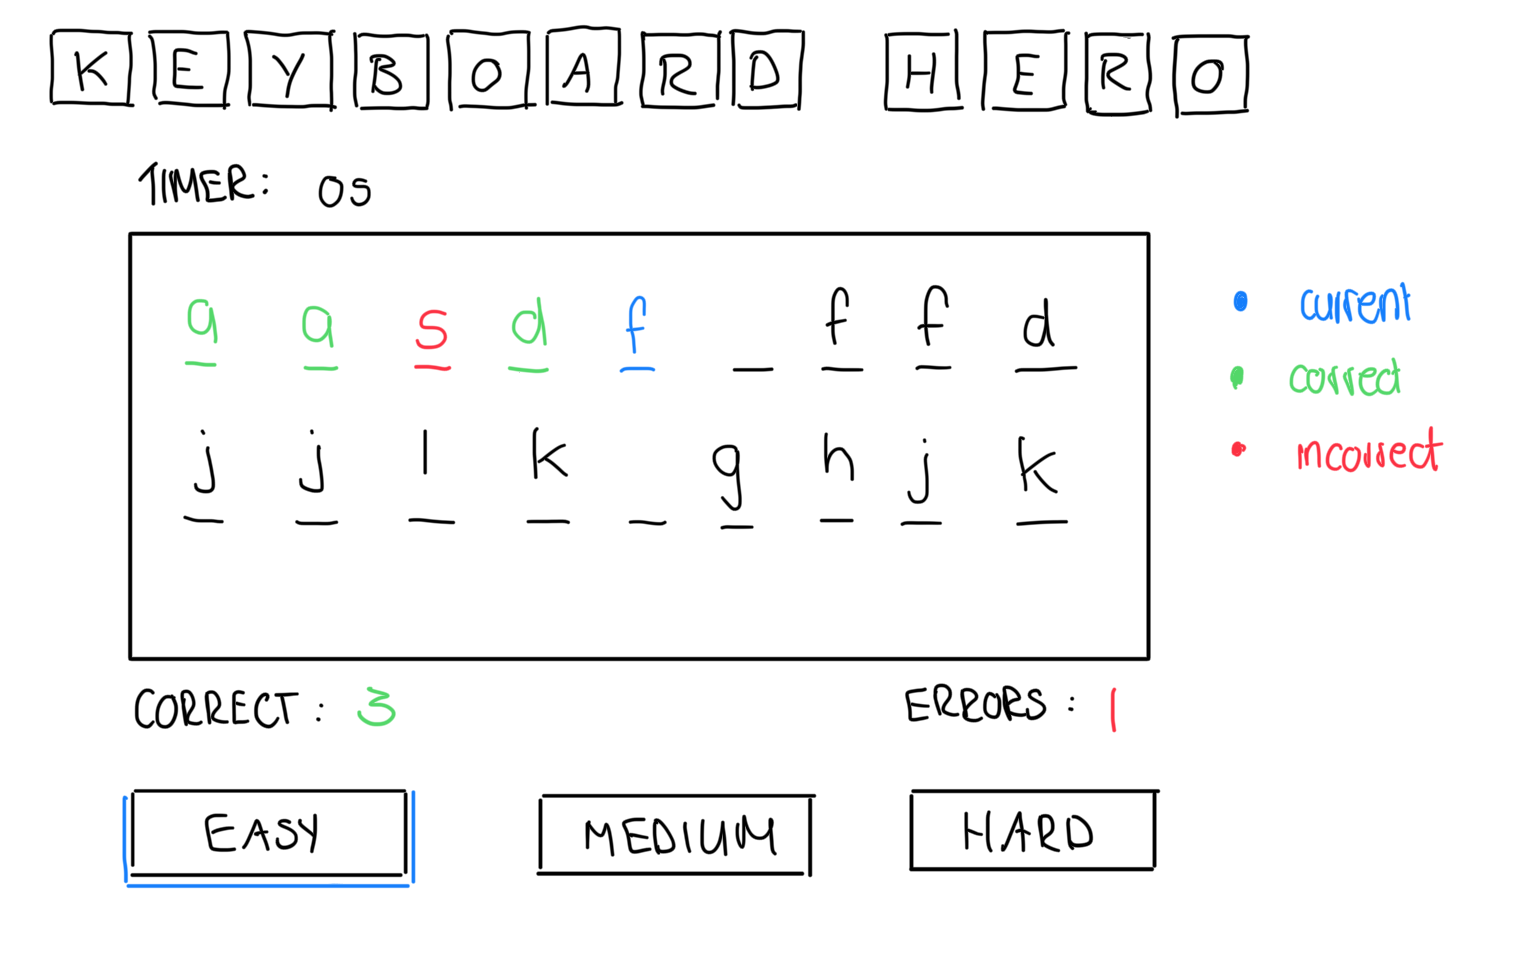 KEYBOARD HERO
TIMER: 0s
a a s d f _ f f d
j j l k _ g h j k
• current
• correct
• incorrect
CORRECT: 3
ERRORS: 1
EASY
MEDIUM
HARD